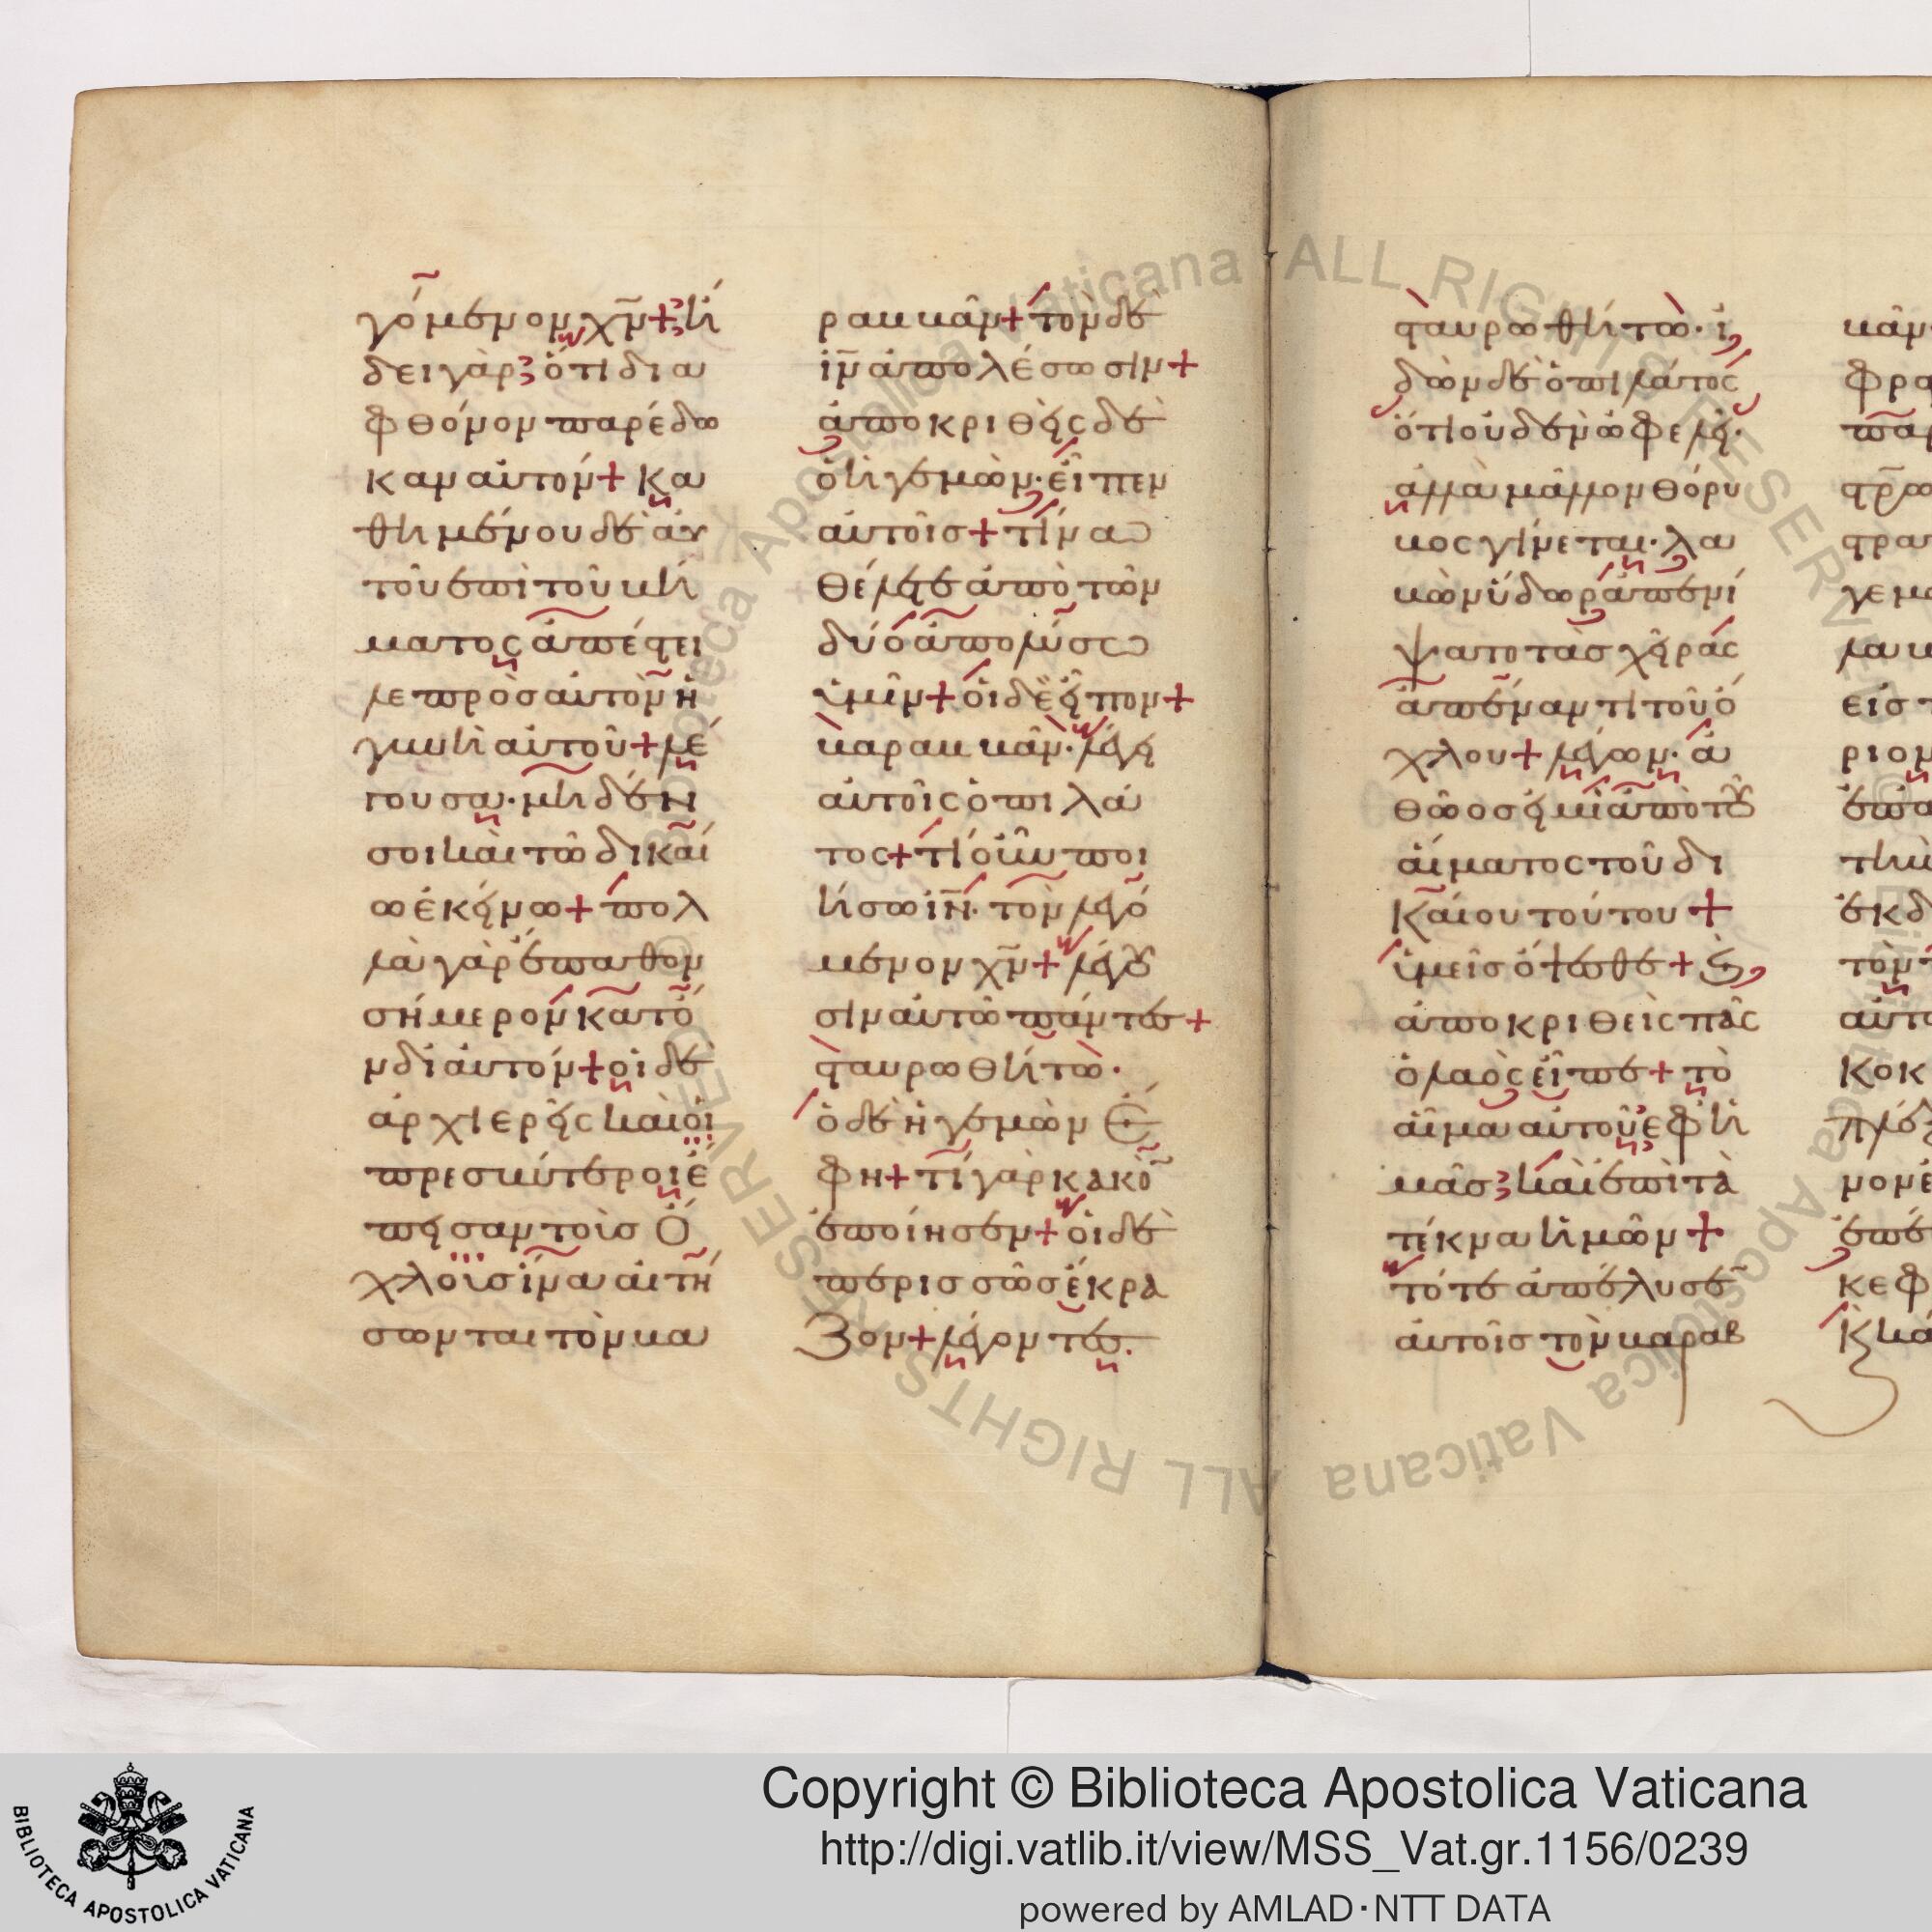 γόμενον χν̅+ ἤ
δει γὰρ ὅτι δια
φθόνον παρέδω
καν αὐτόν+ Κα
θημένου δὲ αὐ
τοῦ ἐπὶ τοῦ βή
ματος ἀπέστει
λε πρὸς αὐτὸν ἡ
γυνὴ αὐτοῦ+ λέ
γουσα· μηδὲν
σοι καὶ τῶ δικαί
ω ἐκείνω+ πολ
λὰ γὰρ ἔπαθον
σήμερον κατό
ν δι αὐτόν+ οἱ δὲ
ἀρχιερεῖς καὶ οἱ
πρεσβύτεροι ἔ
πεισαν τοῖς ὄ
χλοις ἵνα αἰτή
σωνται τὸν βα
ραββᾶν+ τὸν δὲ
ιν̅ ἀπολέσωσιν+
ἀποκριθεὶς δὲ
ὁ ἡγεμὼν· εἶπεν
αὐτοῖς+ τίνα
θέλετε ἀπὸ τῶν
δύο ἀπολύσω
ὑμῖν+ οἱ δὲ εἶπον+
βαραββᾶν· λέγει
αὐτοῖς ὁ πιλά
τος+ τί οὖν ποι
ήσω ιν̅· τὸν λεγό
μενον χν̅+ λέγου
σιν αὐτῶ πάντες+
σταυρωθήτω·
ὁ δὲ ἡγεμὼν ἔ
φη+ τί γὰρ κακὸ̅
ἐποίησεν+ οἱ δὲ
περισσῶς ἔκρα
ζον+ λέγοντες·
σταυρωθήτω· ἰ
δὼν δὲ ὁ πιλάτος
ὅτι οὐδὲν ὠφελεῖ·
ἀλλὰ μᾶλλον θόρυ
βος γίνεται· λα
βὼν ὕδωρ ἀπενί
ψατο τὰς χεῖρας
ἀπέναντι τοῦ ὄ
χλου+ λέγων· ἀ
θῶος εἰμὶ ἀπὸ τοῦ
αἵματος τοῦ δι
καίου τούτου+
ὑμεῖς ὄψεσθε+ ϗ
ἀποκριθεὶς πᾶς
ὁ λαὸς εἶπε+ τὸ
αἷμα αὐτοῦ ἐφ ἡ
μᾶς καὶ ἐπὶ τὰ
τέκνα ἡμῶν+
τότε ἀπέλυσε̅
αὐτοῖς τὸν βαραβ
Copyright © Biblioteca Apostolica Vaticana
http://digi.vatlib.it/view/MSS_Vat.gr.1156/0239
powered by AMLAD·NTT DATA
BIBLIOTECA APOSTOLICA VATICANA